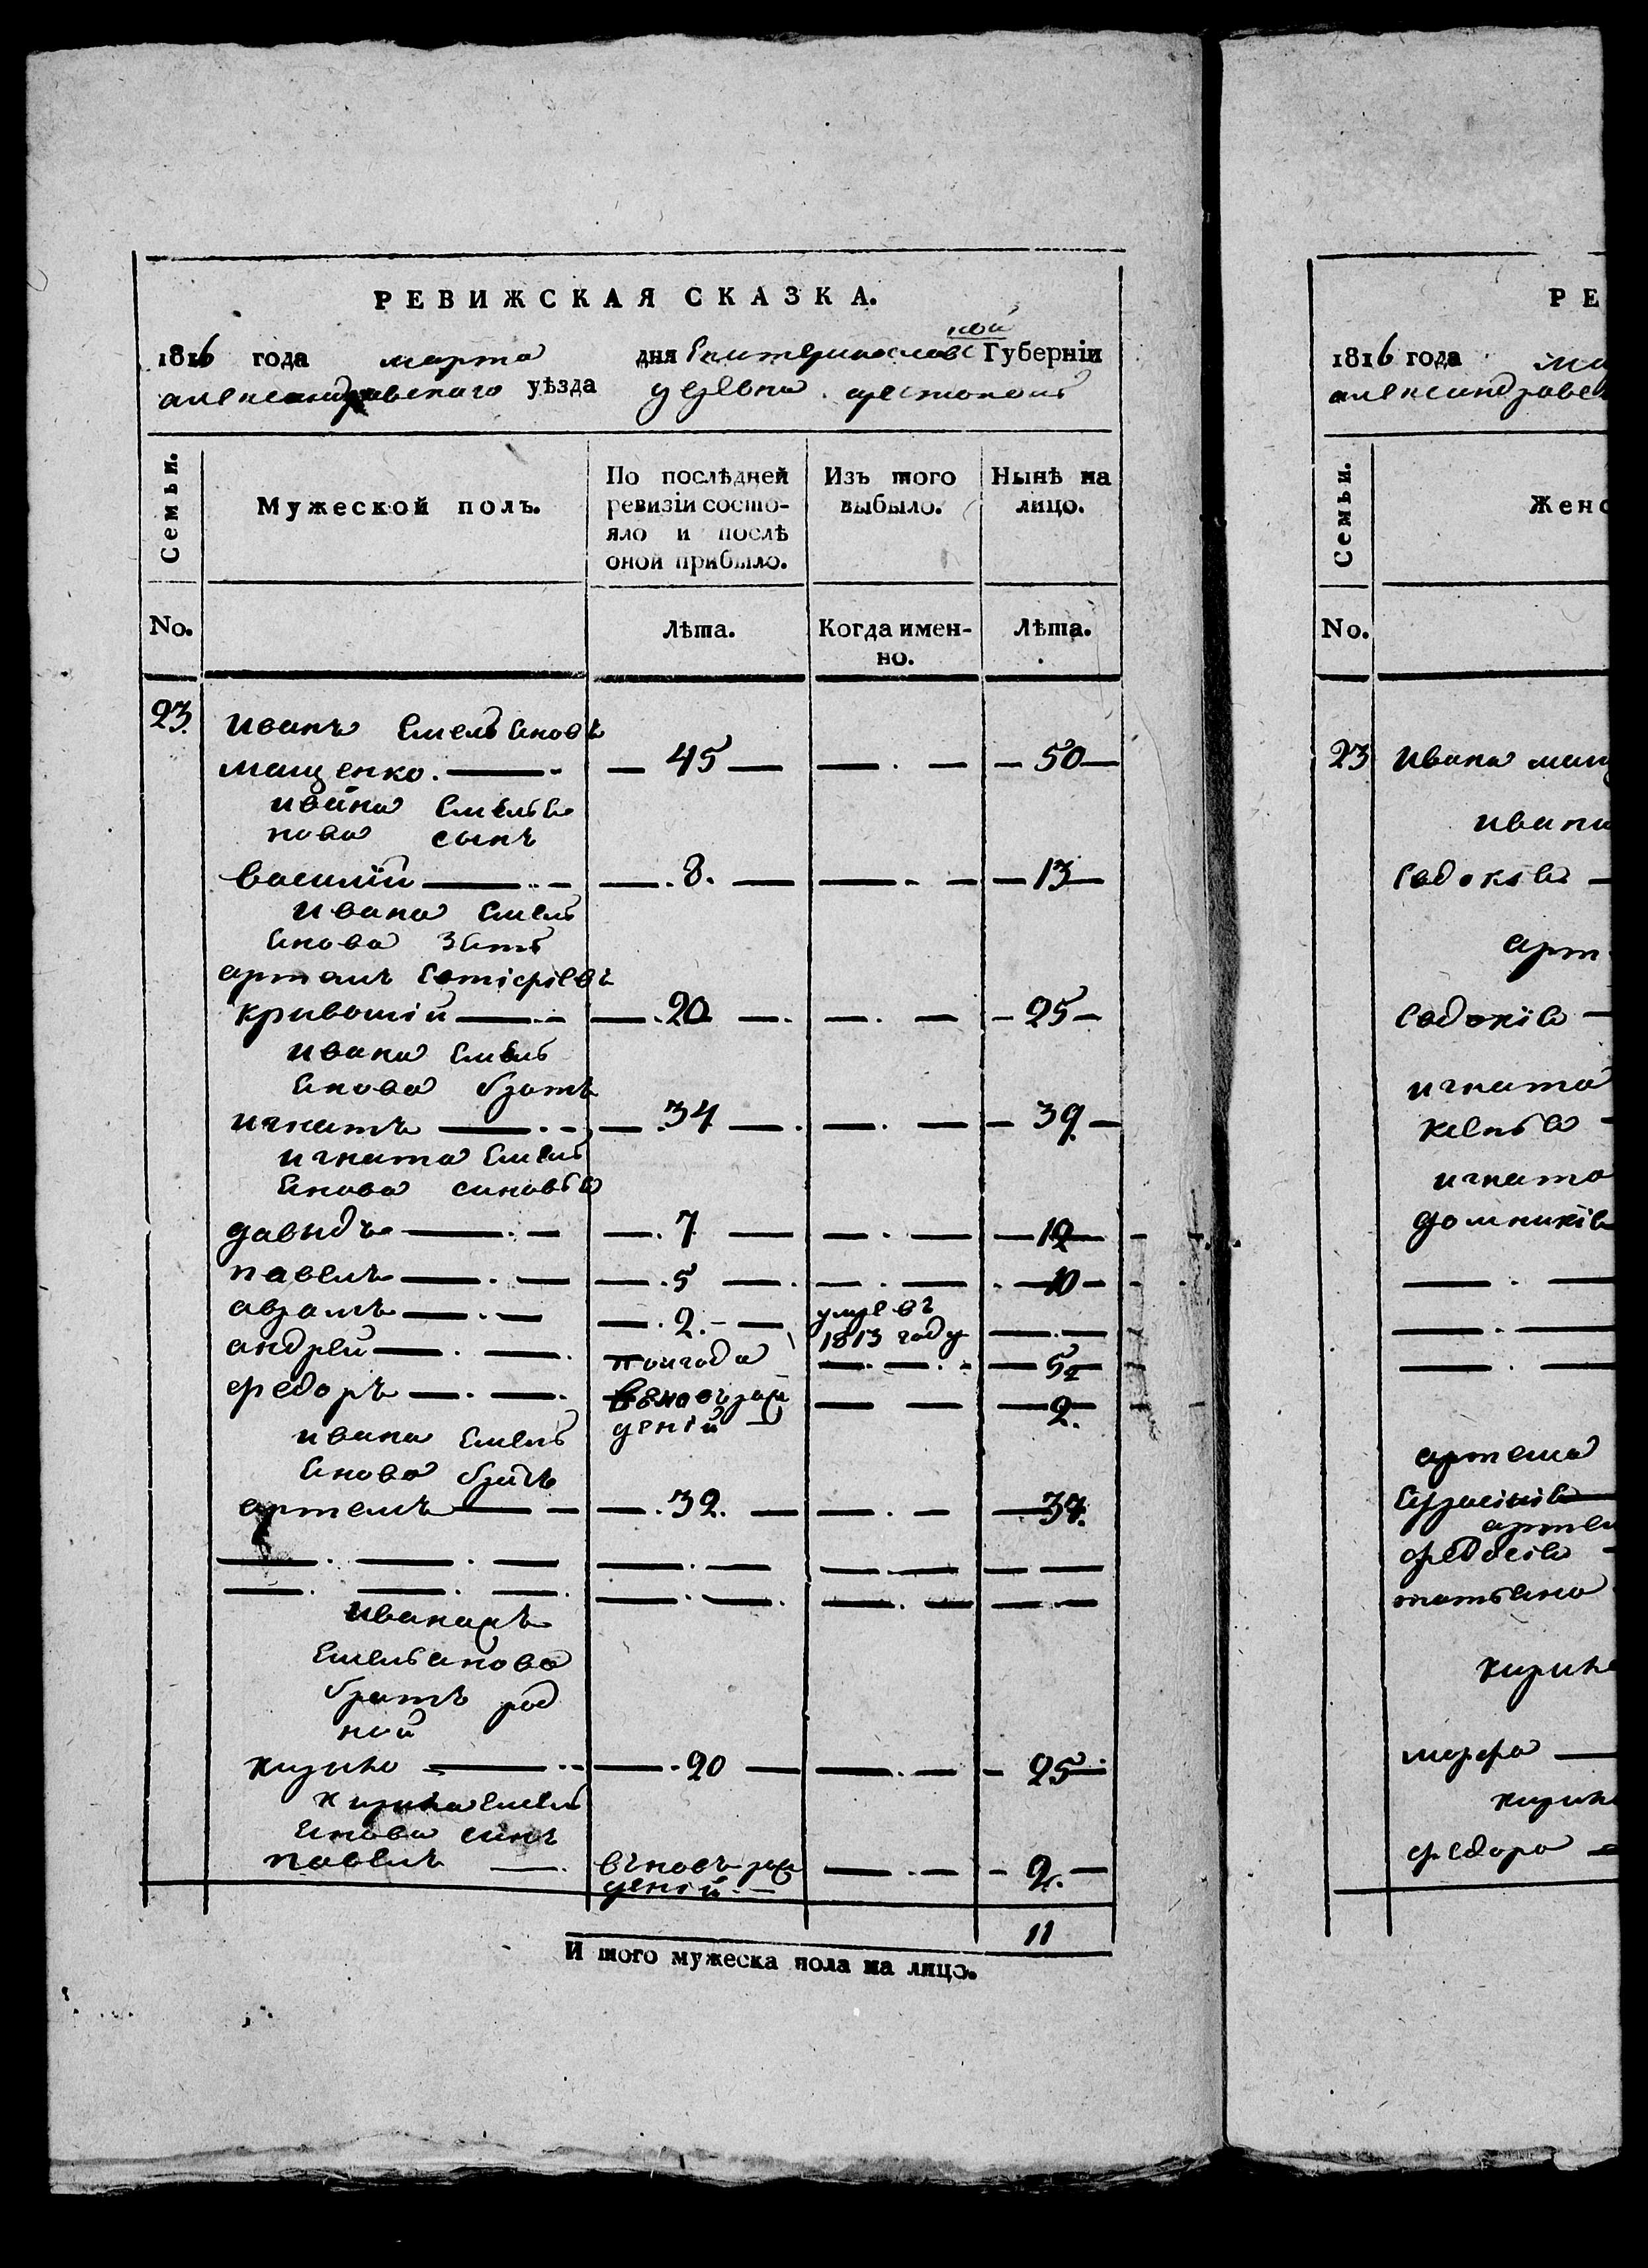 РЕВИЖСКАЯ СКАЗКА.
1816 года марта дня Екатеринославс
кой
Губерніи
александровского уѣзда
Семьи.
Мужеской полъ.
По послѣдней
ревизіи состо-
яло и послѣ
оной прибыло.
Изъ того
выбыло.
Нынѣ на
лицо.
No.
Лѣта.
Когда имен-
но.
Лѣта.
23.
иванъ Емельяновъ
мащенко. 45 50
ивана Емелья
нова сынъ
василій 8. 13
Ивана Емель
янова зять
артемъ
20 25
ивана Емель
янова братъ
игнатъ 34 39
игната Емель
янова синовья
давыдъ 7 12
павелъ 5 10
аврамъ 2. умре въ
1813 году
андрей 5
федоръ 2.
деній
ивана Емель
янова братъ
артемъ 32. 37.
Емельянова
братъ род
ной
кирило 20 25
кирила Емель
янова синъ
павелъ вьновь рож 2.
деній
11
И того мужеска пола на лицо.
РЕ
1816 года ма
александровск
Семьи.
Женс
No.
23 Ивана мащ
ивана
Евдокія
арт
Евдокія
игната
игната
домникія
артема
артем
федосія
татьяна
кирил
марфа
кирил
федора